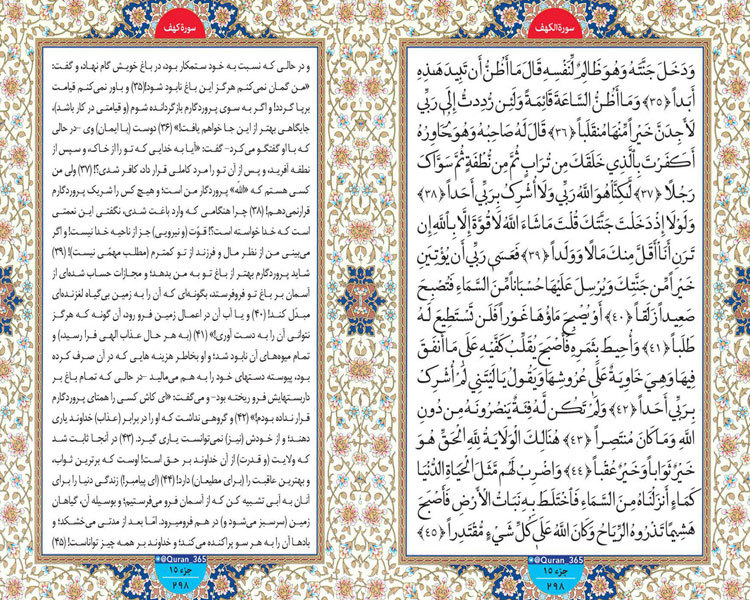 سورة الكهف
وَدَخَلَ جَنَّتَهُ وَهُوَ ظَالِمٌ لِّنَفْسِهِ قَالَ مَا أَظُنُّ أَن تَبِيدَ هَذِهِ
أَبَداً ﴿۳۵﴾ وَمَا أَظُنُّ السَّاعَةَ قَائِمَةً وَلَئِن رُّدِدتُّ إِلَى رَبِّي
لَأَجِدَنَّ خَيْراً مِّنْهَا مُنقَلَباً ﴿۳۶﴾ قَالَ لَهُ صَاحِبُهُ وَهُوَ يُحَاوِرُهُ
أَكَفَرْتَ بِالَّذِي خَلَقَكَ مِن تُرَابٍ ثُمَّ مِن نُّطْفَةٍ ثُمَّ سَوَّاكَ
رَجُلًا ﴿۳۷﴾ لَّكِنَّا هُوَ اللَّهُ رَبِّي وَلَا أُشْرِكُ بِرَبِّي أَحَداً ﴿۳۸﴾
وَلَوْلَا إِذْ دَخَلْتَ جَنَّتَكَ قُلْتَ مَا شَاءَ اللَّهُ لَا قُوَّةَ إِلَّا بِاللَّهِ إِن
تَرَنِ أَنَا أَقَلَّ مِنكَ مَالًا وَوَلَداً ﴿۳۹﴾ فَعَسَى رَبِّي أَن يُؤْتِيَنِ
خَيْراً مِّن جَنَّتِكَ وَيُرْسِلَ عَلَيْهَا حُسْبَاناً مِّنَ السَّمَاءِ فَتُصْبِحَ
صَعِيداً زَلَقاً ﴿۴۰﴾ أَوْ يُصْبِحَ مَاؤُهَا غَوْراً فَلَن تَسْتَطِيعَ لَهُ
طَلَباً ﴿۴۱﴾ وَأُحِيطَ بِثَمَرِهِ فَأَصْبَحَ يُقَلِّبُ كَفَّيْهِ عَلَى مَا أَنفَقَ
فِيهَا وَهِيَ خَاوِيَةٌ عَلَى عُرُوشِهَا وَيَقُولُ يَا لَيْتَنِي لَمْ أُشْرِكْ
بِرَبِّي أَحَداً ﴿۴۲﴾ وَلَمْ تَكُن لَّهُ فِئَةٌ يَنصُرُونَهُ مِن دُونِ
اللَّهِ وَمَا كَانَ مُنتَصِراً ﴿۴۳﴾ هُنَالِكَ الْوَلَايَةُ لِلَّهِ الْحَقِّ هُوَ
خَيْرٌ ثَوَاباً وَخَيْرٌ عُقْباً ﴿۴۴﴾ وَاضْرِبْ لَهُم مَّثَلَ الْحَيَاةِ الدُّنْيَا
كَمَاءٍ أَنزَلْنَاهُ مِنَ السَّمَاءِ فَاخْتَلَطَ بِهِ نَبَاتُ الْأَرْضِ فَأَصْبَحَ
هَشِيماً تَذْرُوهُ الرِّيَاحُ وَكَانَ اللَّهُ عَلَى كُلِّ شَيْءٍ مُّقْتَدِراً ﴿۴۵﴾
@Quran_365
جزء ۱۵
۲۹۸
سورۀ کهف
و در حالی که نسبت به خود ستمکار بود، در باغ خویش گام نهاد، و گفت:
«من گمان نمی‌کنم هرگز این باغ نابود شود! (۳۵) و باور نمی‌کنم قیامت
برپا گردد! و اگر به سوی پروردگارم بازگردانده شوم (و قیامتی در کار باشد)،
جایگاهی بهتر از این جا خواهم یافت!» (۳۶) دوست (با ایمان) وی -در حالی
که با او گفتگو می‌کرد- گفت: «آیا به خدایی که تو را از خاک، و سپس از
نطفه آفرید، و پس از آن تو را مرد کاملی قرار داد، کافر شدی؟! (۳۷) ولی من
کسی هستم که «الله» پروردگار من است؛ و هیچ کس را شریک پروردگارم
قرار نمی‌دهم! (۳۸) چرا هنگامی که وارد باغت شدی، نگفتی این نعمتی
است که خدا خواسته است؟! قوّت (و نیرویی) جز از ناحیه خدا نیست! و اگر
می‌بینی من از نظر مال و فرزند از تو کمترم (مطلب مهمّی نیست)! (۳۹)
شاید پروردگارم بهتر از باغ تو به من بدهد؛ و مجازات حساب شده‌ای از
آسمان بر باغ تو فروفرستد، بگونه‌ای که آن را به زمین بی‌گیاه لغزنده‌ای
مبدّل کند! (۴۰) و یا آب آن در اعمال زمین فرو رود، آن گونه که هرگز
نتوانی آن را به دست آوری!» (۴۱) (به هر حال عذاب الهی فرا رسید،) و
تمام میوه‌های آن نابود شد؛ و او بخاطر هزینه هایی که در آن صرف کرده
بود، پیوسته دستهای خود را به هم می‌مالید -در حالی که تمام باغ بر
داربستهایش فرو ریخته بود- و می‌گفت: «ای کاش کسی را همتای پروردگارم
قرار نداده بودم!» (۴۲) و گروهی نداشت که او را در برابر (عذاب) خداوند یاری
دهند؛ و از خودش (نیز) نمی‌توانست یاری گیرد. (۴۳) در آنجا ثابت شد
که ولایت (و قدرت) از آن خداوند بر حق است! اوست که برترین ثواب،
و بهترین عاقبت را (برای مطیعان) دارد! (۴۴) (ای پیامبر!) زندگی دنیا را برای
آنان به آبی تشبیه کن که از آسمان فرو می‌فرستیم؛ و بوسیله آن، گیاهان
زمین (سرسبز می‌شود و) در هم فرومیرود. اما بعد از مدتی می‌خشکد؛ و
بادها آن را به هر سو پراکنده می‌کند؛ و خداوند بر همه چیز تواناست! (۴۵)
@Quran_365
جزء ۱۵
۲۹۸